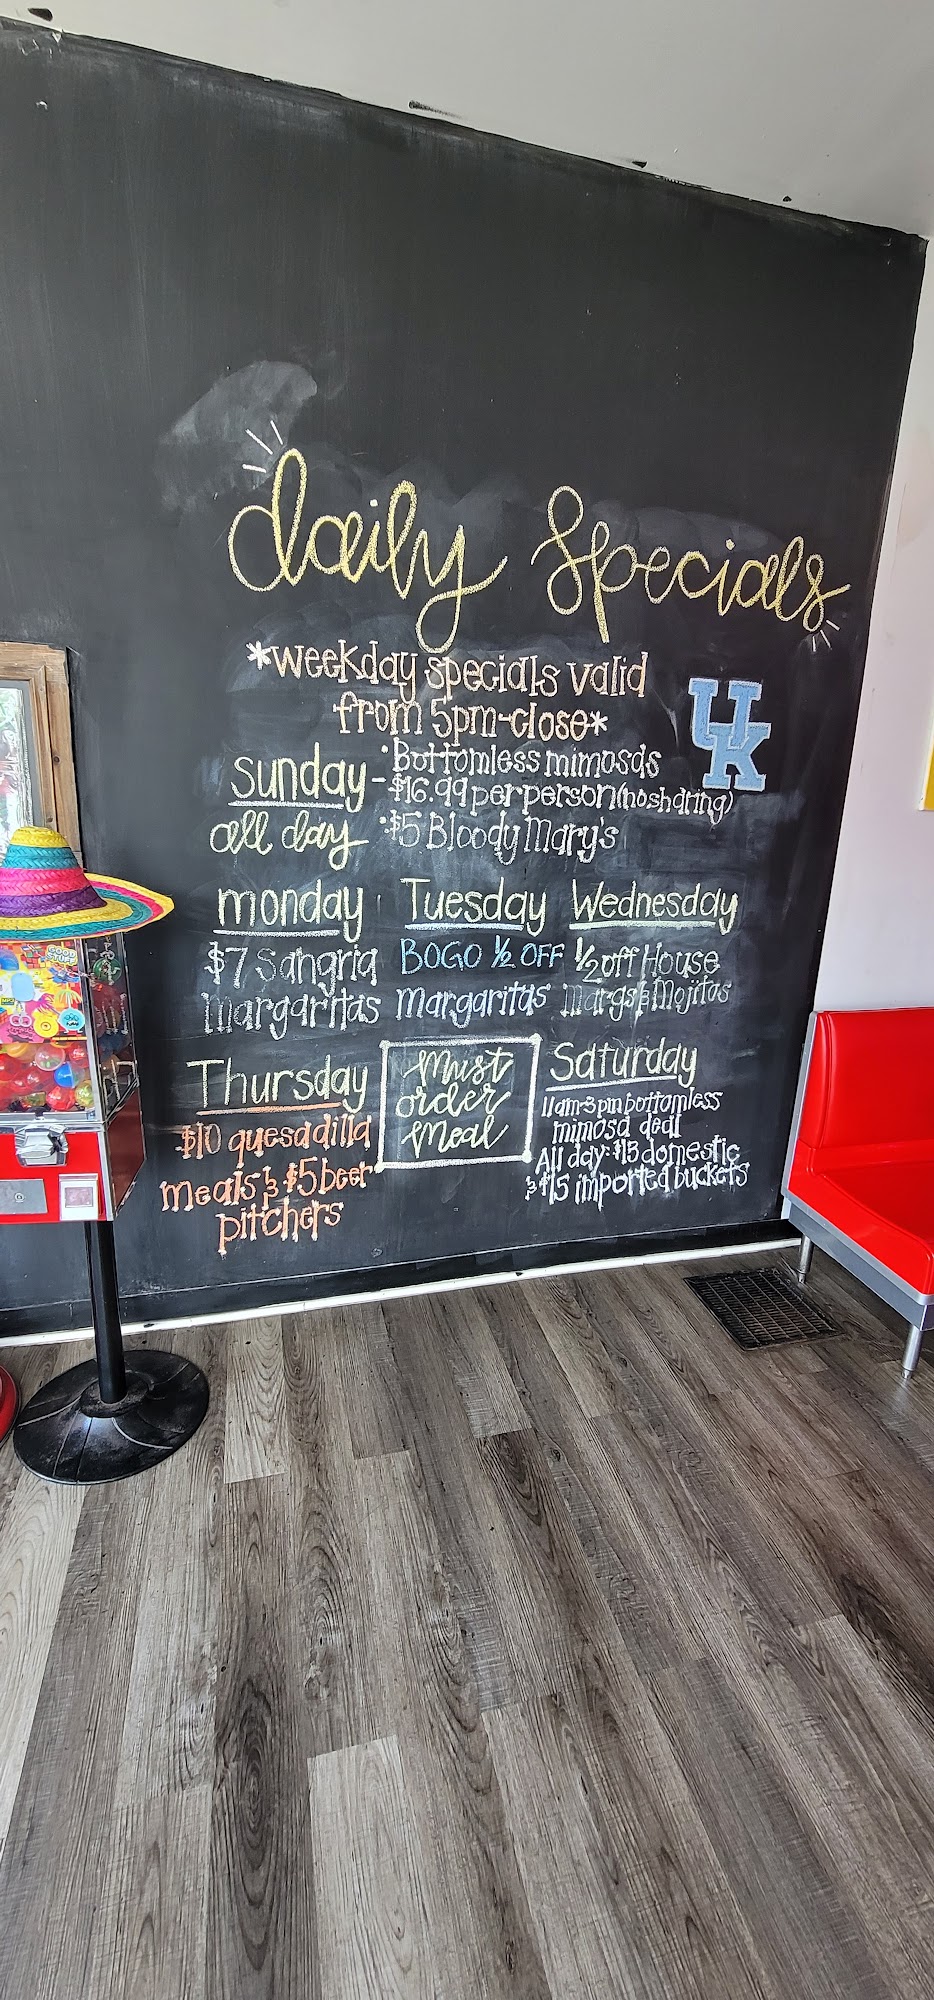 daily specials
*weekday specials valid
from 5pm-close*
UK
Sunday -
all day
• Bottomless mimosas
$16.99 per person (no sharing)
• $5 Bloody Mary's
monday
$7 Sangria
Margaritas
Tuesday
BOGO 1/2 OFF
Margaritas
Wednesday
1/2 off House
Margs & Mojitos
Thursday
$10 quesadilla
meals & $5 beer
pitchers
Must
order
Meal
Saturday
11am-3pm bottomless
mimosa deal
All day: $13 domestic
& $15 imported buckets
GOOD
STUFF